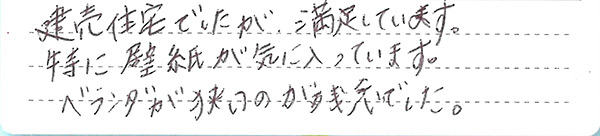 建売住宅でしたが、満足しています。
特に壁紙が気に入っています。
ベランダが狭いのが残念でした。